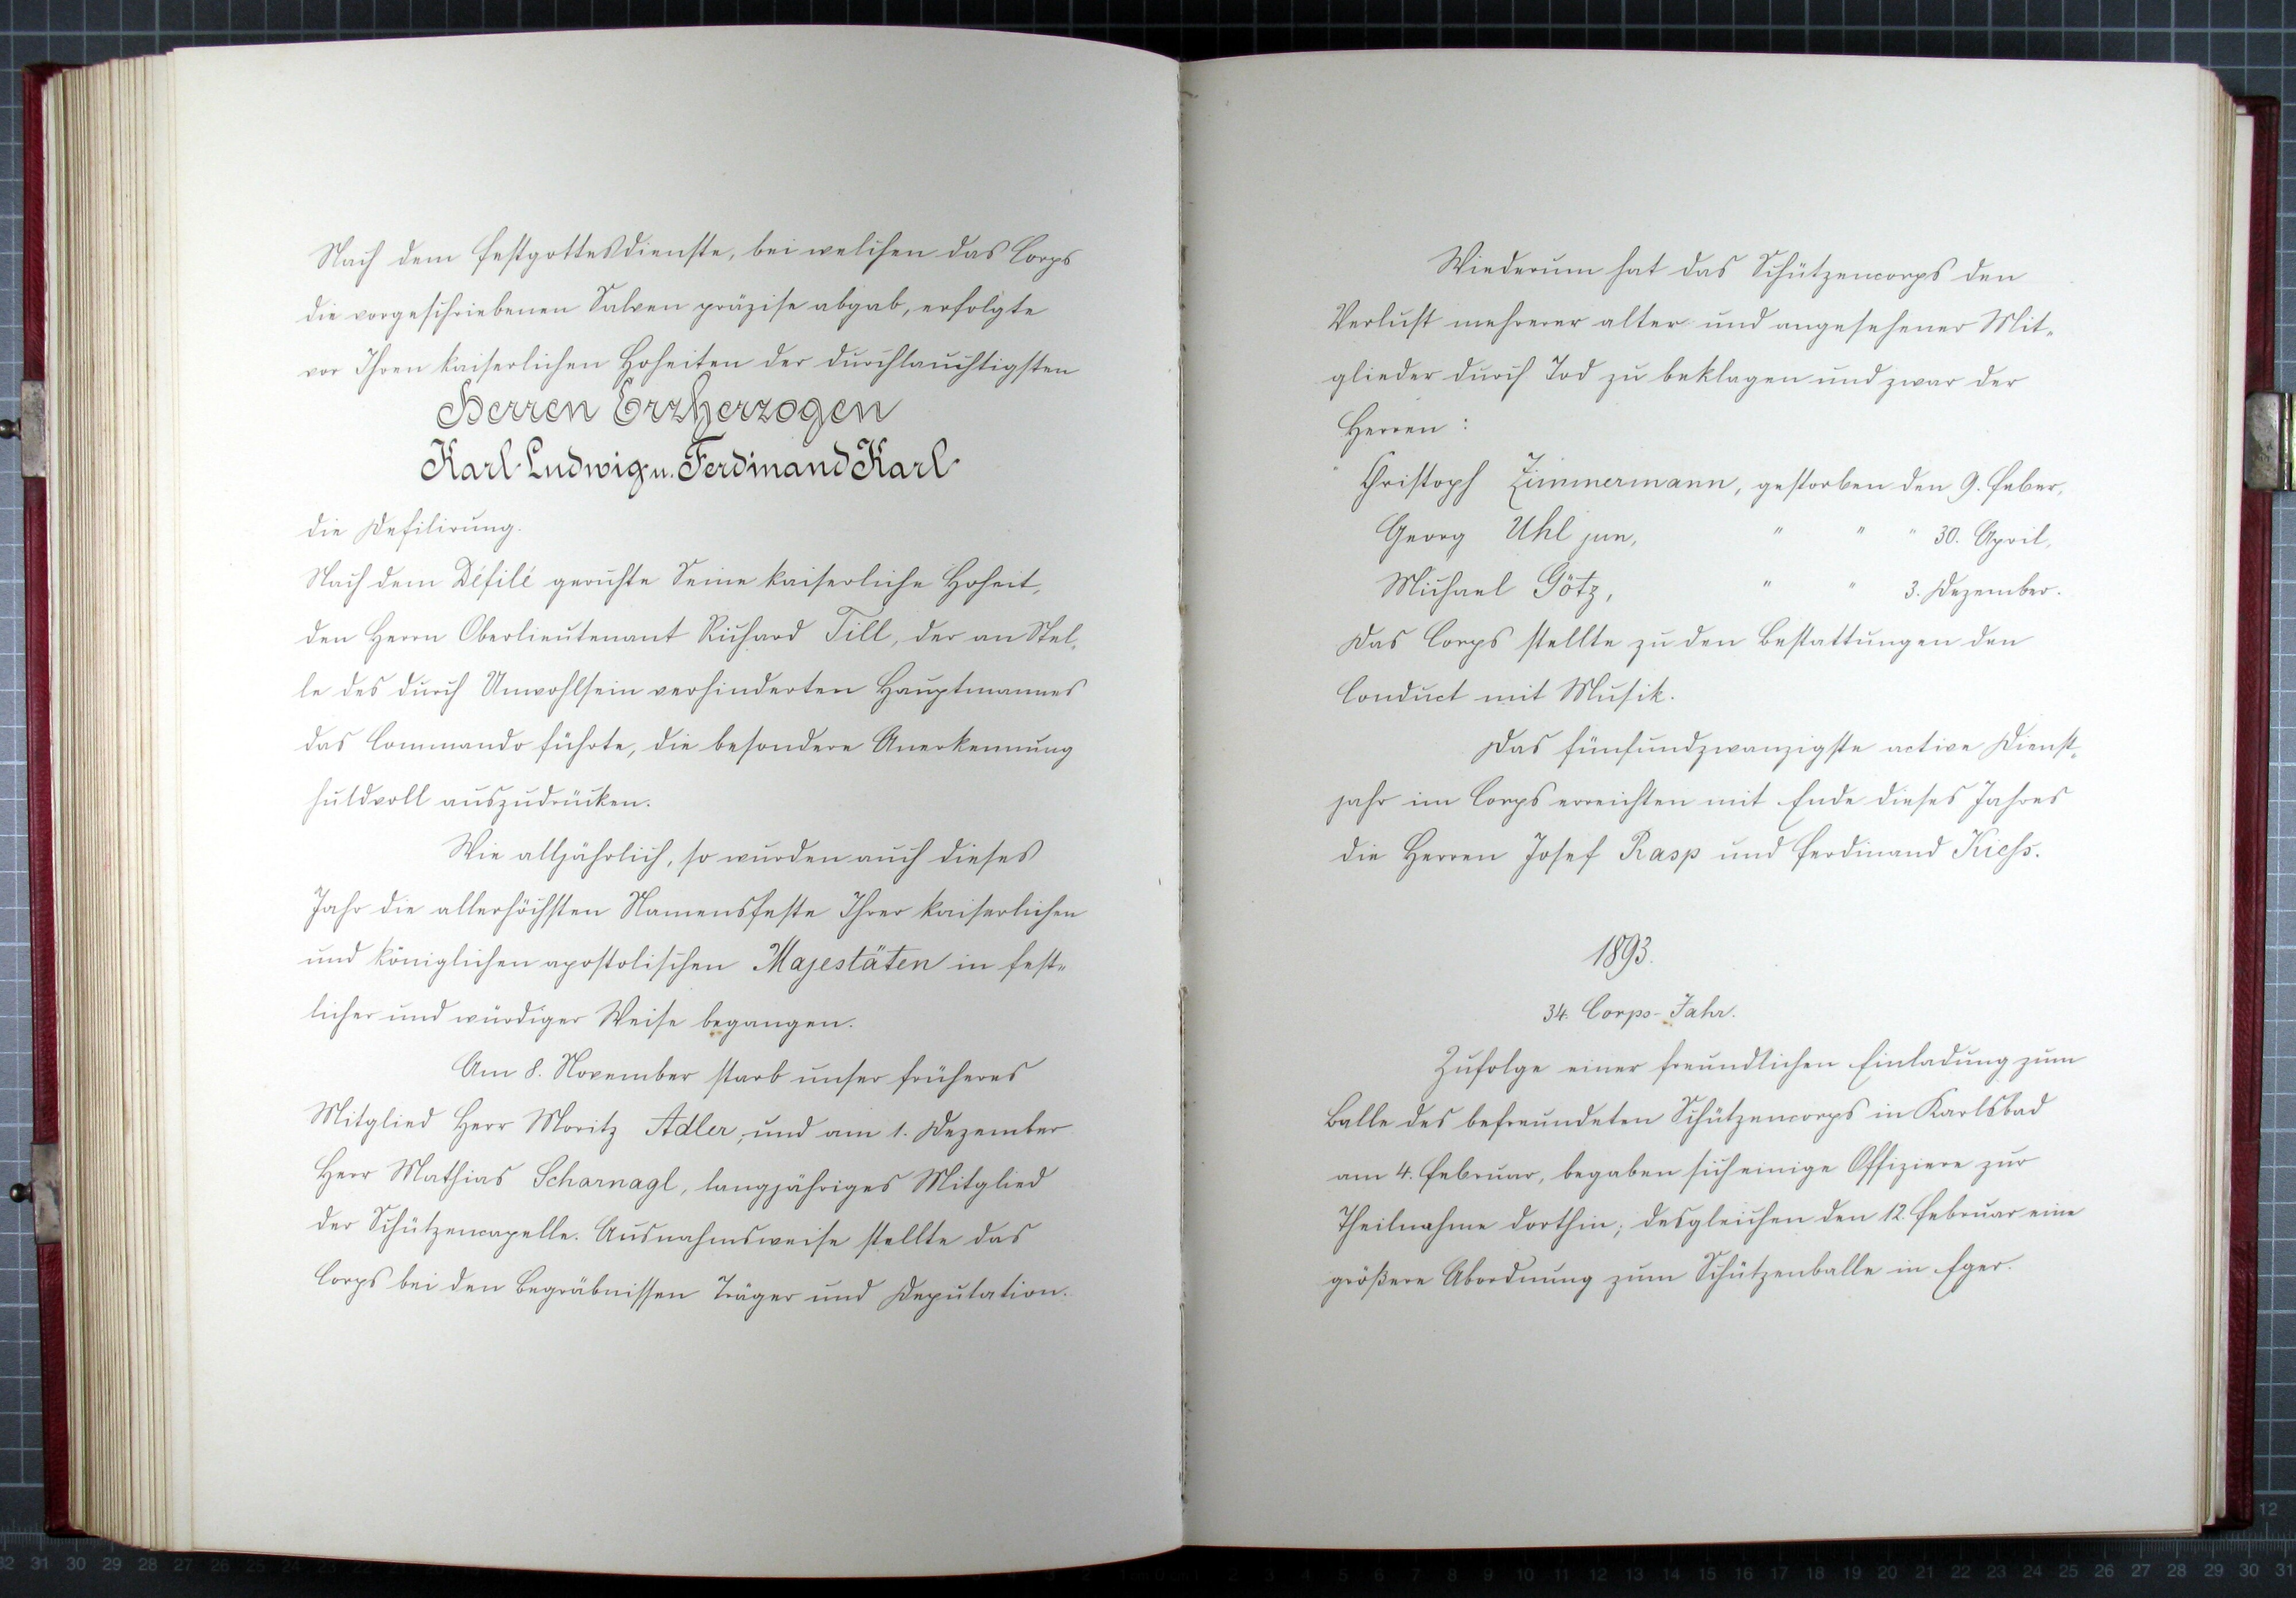 Nach dem Festgottesdienste, bei welchen das Corps
die vorgeschriebenen Salven präzise abgab, erfolgte
vor Ihren kaiserlichen Hoheiten der durchlauchtigsten
Herren Erzherzogen
Karl Ludwig u. Ferdinand Karl
die Defilirung.
Nach dem Défilé geruhte Seine kaiserliche Hoheit,
den Herrn Oberlieutenant Richard Till, der an Stel-
le des durch Unwohlsein verhinderten Hauptmannes
das Commando führte, die besondere Anerkennung
huldvoll auszudrücken.
Wie alljährlich, so wurden auch dieses
Jahr die allerhöchsten Namensfeste Ihrer kaiserlichen
und königlichen apostolischen Majestäten in fest-
licher und würdiger Weise begangen.
Am 8. November starb unser früheres
Mitglied Herr Moritz Adler, und am 1. Dezember
Herr Mathias Scharnagl, langjähriges Mitglied
der Schützencapelle. Ausnahmsweise stellte das
Corps bei den Begräbnissen Träger und Deputation.
Wiederum hat das Schützencorps den
Verlust mehrerer alter und angesehener Mit-
glieder durch Tod zu beklagen und zwar der
Herren :
Christoph Zimmermann, gestorben den 9. Feber,
Georg Uhl jun, " " " 30. April,
Michael Götz, " " 3. Dezember.
Das Corps stellte zu den Bestattungen den
Conduct mit Musik.
Das fünfundzwanzigste active Dienst-
jahr im Corps erreichten mit Ende dieses Jahres
die Herren Josef Rasp und Ferdinand Kieß.
1893.
34. Corps-Jahr.
Zufolge einer freundlichen Einladung zum
Balle des befreundeten Schützencorps in Karlsbad
am 4. Februar, begaben sich einige Offiziere zur
Theilnahme dorthin; desgleichen den 12. Februar eine
größere Abordnung zum Schützenballe in Eger.
32 31 30 29 28 27 26 25 24 23 22
1 2 3 4 5 6 7 8 9 10 11 12 13 14 15 16 17 18 19 20 21 22 23 24 25 26 27 28 29 30 31
12